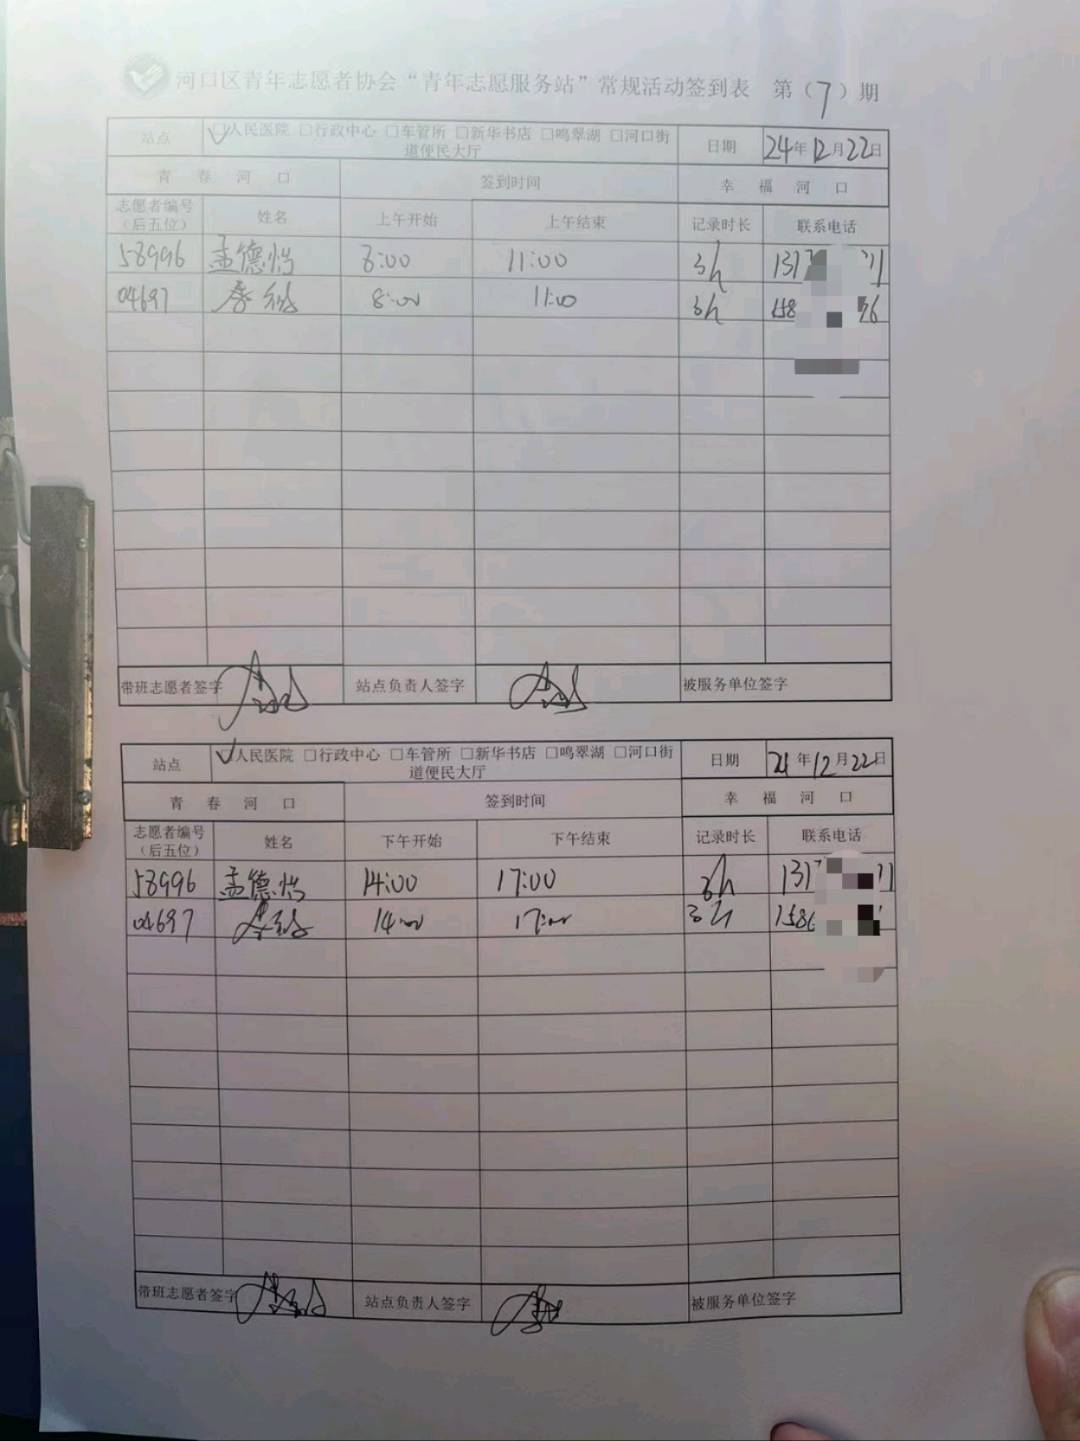 河口区青年志愿者协会“青年志愿服务站”常规活动签到表 第（7）期
站点 ☑人民医院 □行政中心 □车管所 □新华书店 □鸣翠湖 □河口街道便民大厅 日期 24年12月22日
青春河口 签到时间 幸福河口
志愿者编号（后五位） 姓名 上午开始 上午结束 记录时长 联系电话
58996 孟德怡 8:00 11:00 3h 137 71
04697 8:00 11:00 3h 158 26
带班志愿者签字 站点负责人签字 被服务单位签字
站点 ☑人民医院 □行政中心 □车管所 □新华书店 □鸣翠湖 □河口街道便民大厅 日期 24年12月22日
青春河口 签到时间 幸福河口
志愿者编号（后五位） 姓名 下午开始 下午结束 记录时长 联系电话
58996 孟德怡 14:00 17:00 3h 137 71
04697 14:00 17:00 3h 158
带班志愿者签字 站点负责人签字 被服务单位签字